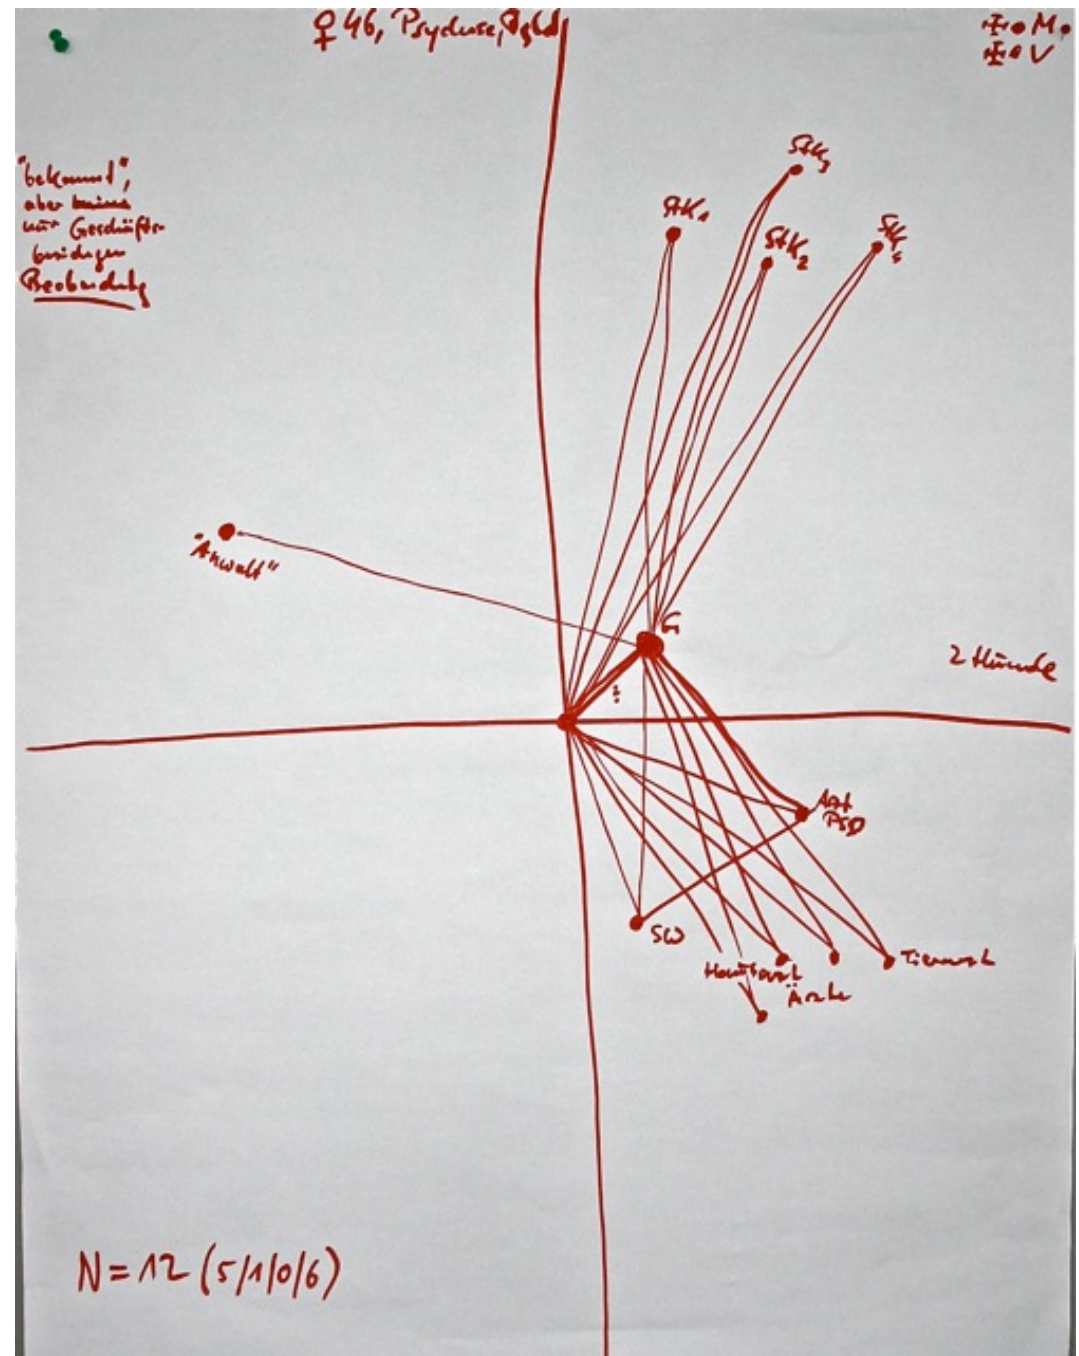 ♀ 46, Psychose,
✠ • M.
✠ • V
"bekannt",
aber keine
nur Geschäfts-
beziehungen
Beobachtung
StK3
StK1
StK2
StK
"Anwalt"
G
2 Hunde
?
Arzt
PSD
SW
Hautarzt
Tierarzt
Ärzte
N=12 (5/1/0/6)